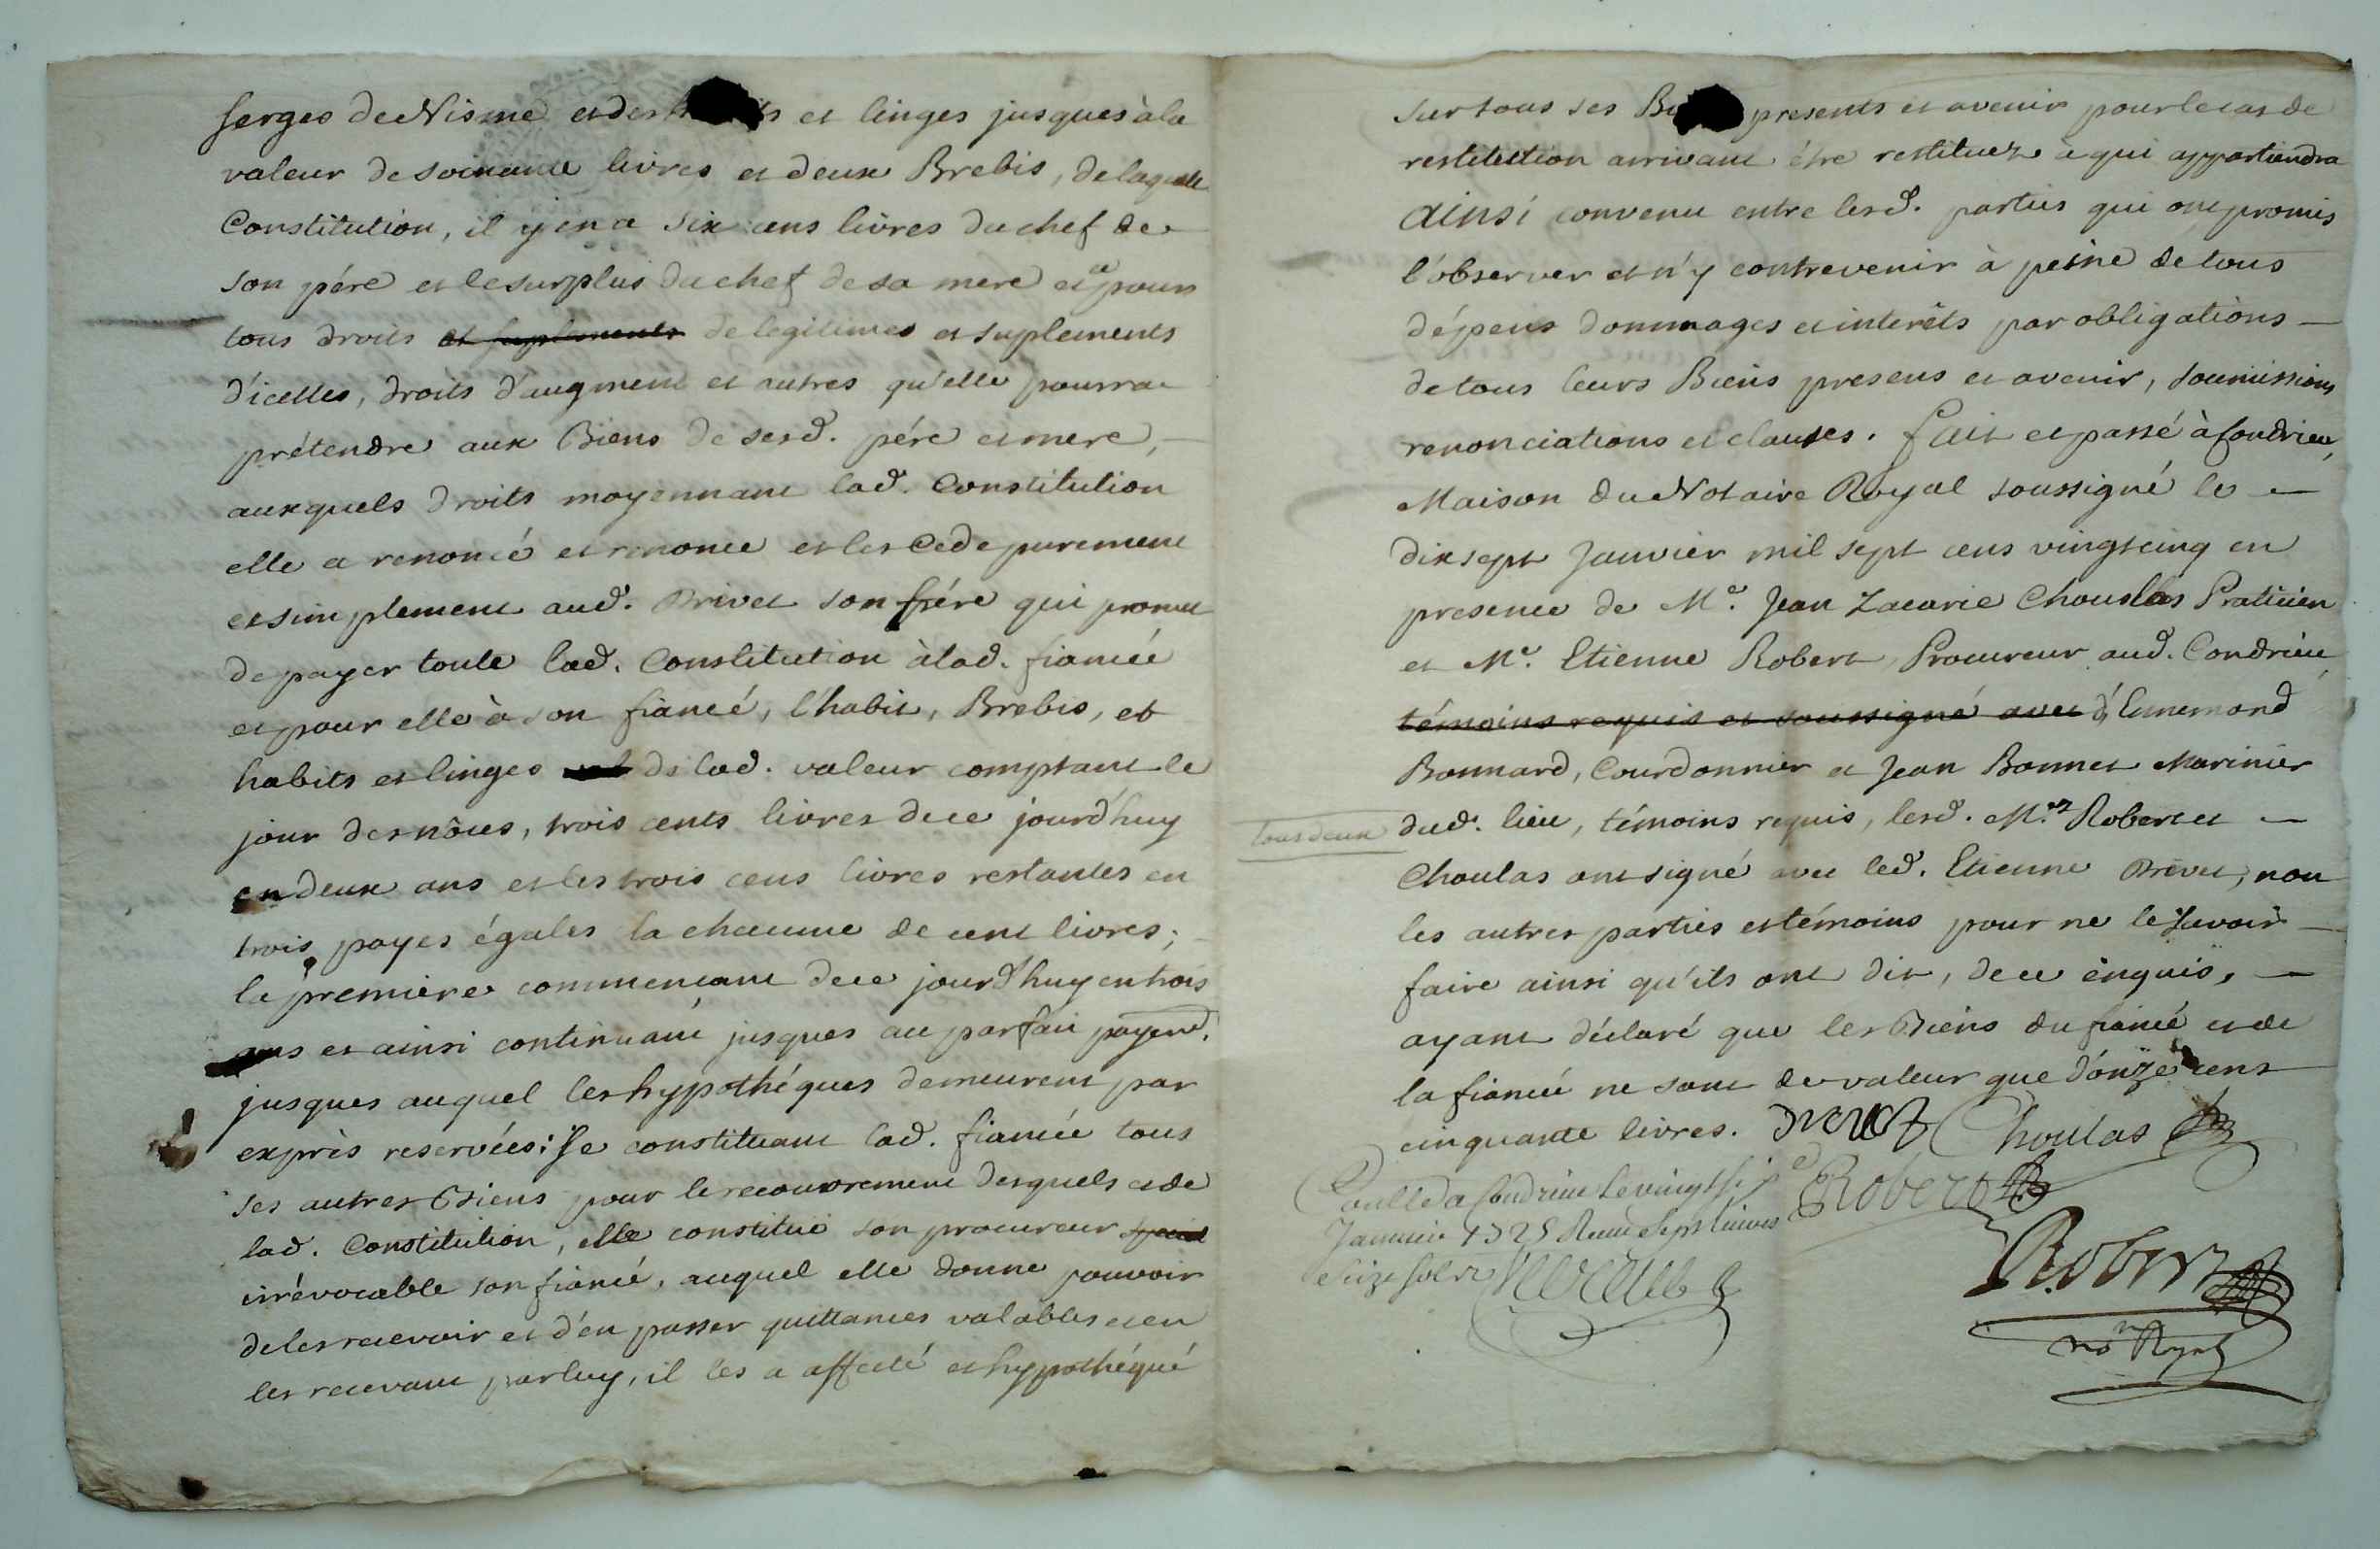 Serges de Nisme et des h ts et linges jusques à la
valeur de soixante livres et deux Brebis, de laquelle
Constitution, il y en a six cens livres du chef de
son pére et le surplus du chef de sa mere et ce pour
tous droits et suplements de legitimes et suplements
d'icelles, droits d'augment et autres qu'elle pourra
prétendre aux Biens de sesd. pére et mere,
auxquels droits moyennant lad. Constitution
elle a renoncé et renonce et les Cede purement
et simplement aud. Drivet son frére qui promet
de payer toute lad. Constitution à lad. fiancée
et pour elle à son fiancé, l'habit, Brebis, et
habits et linges de lad. valeur comptant le
jour des nôces, trois cents livres de ce jourd'huy
en deux ans et les trois cens livres restantes en
trois payes égales la chacune de cent livres;
la premiere commencant de ce jourd'huy en trois
ans et ainsi continuant jusques au parfait payemt.
jusques auquel les hypothéques demeurent par
exprès reservées: Se constituant lad. fiancée tous
ses autres Biens pour le recouvrement desquels et de
lad. Constitution, elle constitue son procureur special
irrévocable son fiancé, auquel elle donne pouvoir
de les recevoir et d'en passer quittances valables et en
les recevant par luy, il les a affecté et hypothéqué
sur tous ses Bi presents et avenir pour le cas de
restitution arrivant étre restituez à qui appartiendra
Ainsi convenu entre lesd. parties qui ont promis
l'observer et n'y contrevenir à peine de tous
dépens dommages et interêts par obligations
de tous leurs Biens presens et avenir, soumissions
renonciations et clauses. fait et passé à Condrieu,
Maison du Notaire Royal soussigné le
dix sept Janvier mil sept cens vingt cinq en
presence de Me. Jean Zacarie Choulas Praticien
et Me. Etienne Robert Procureur aud. Condrieu
témoins requis et soussigné avec d'Ennemond
Bonnard, Courdonnier et Jean Bonnet Marinier
tous deux
dud. lieu, témoins requis, lesd. Mes Robert et
Choulas ont signé avec led. Etienne Drivet, non
les autres parties et témoins pour ne le savoir
faire ainsi qu'ils ont dit, de ce enquis,
ayant déclaré que les Biens du fiancé et de
la fiancée ne sont de valeur que d'onze cens
cinquante livres. Drivet Choulas
Coullé a Condrieu le vingt six
Robert
Janvier 1725 Receu Sept livres
Seize sols
Robert
no Ryal